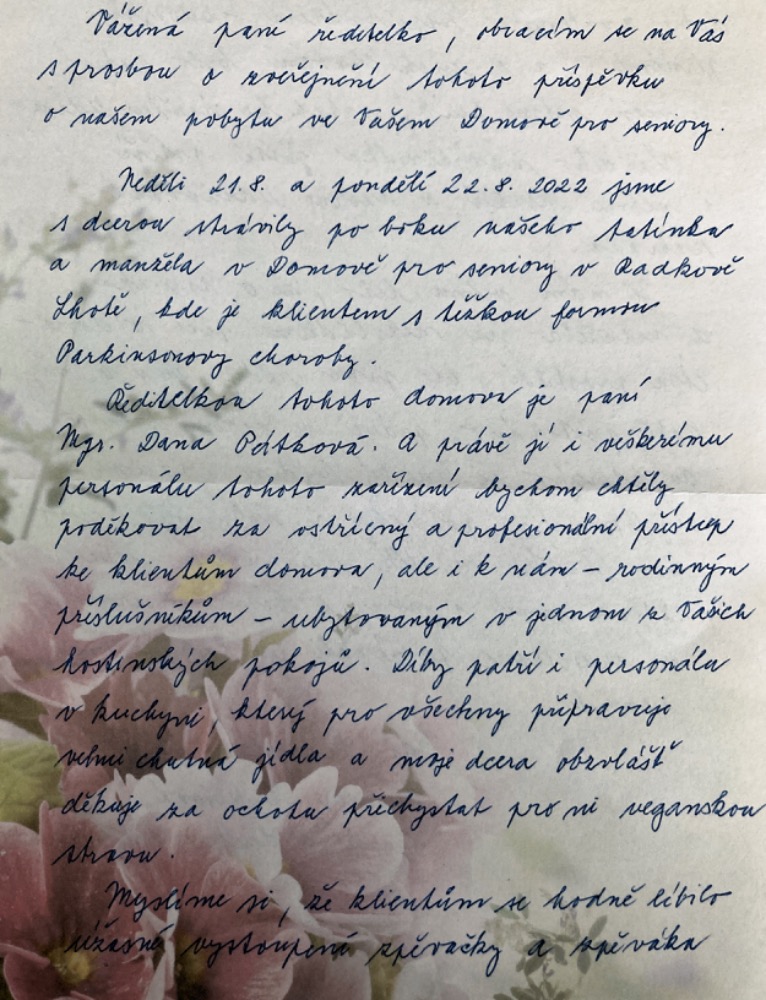 Vážená paní ředitelko, obracím se na Vás
s prosbou o zveřejnění tohoto příspěvku
o našem pobytu ve Vašem Domově pro seniory.
Neděli 21.8. a pondělí 22.8. 2022 jsme
s dcerou strávily po boku našeho tatínka
a manžela v Domově pro seniory v Radkově
Lhotě, kde je klientem s těžkou formou
Parkinsonovy choroby.
Ředitelkou tohoto domova je paní
Mgr. Dana Pátková. A právě jí i veškerému
personálu tohoto zařízení bychom chtěly
poděkovat za vstřícný a profesionální přístup
ke klientům domova, ale i k nám – rodinným
příslušníkům – ubytovaným v jednom z Vašich
hostinských pokojů. Díky patří i personálu
v kuchyni, který pro všechny připravuje
velmi chutná jídla a moje dcera obzvlášť
děkuje za ochotu přichystat pro ni veganskou
stravu.
Myslíme si, že klientům se hodně líbilo
úžasné vystoupení zpěvačky a zpěváka